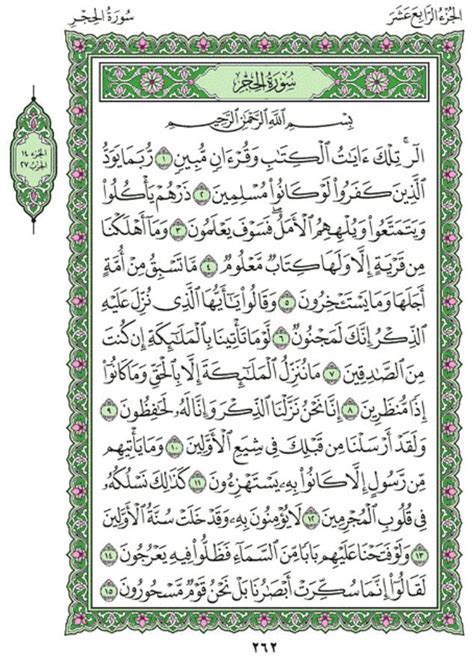 الجزء الرابع عشر
سورة الحجر
سورة الحجر
بِسْمِ اللَّهِ الرَّحْمَٰنِ الرَّحِيمِ
الجزء ١٤
الحزب ٢٧
الٓر ۚ تِلْكَ ءَايَٰتُ ٱلْكِتَٰبِ وَقُرْءَانٍ مُّبِينٍ ١ رُّبَمَا يَوَدُّ
ٱلَّذِينَ كَفَرُوا۟ لَوْ كَانُوا۟ مُسْلِمِينَ ٢ ذَرْهُمْ يَأْكُلُوا۟
وَيَتَمَتَّعُوا۟ وَيُلْهِهِمُ ٱلْأَمَلُ ۖ فَسَوْفَ يَعْلَمُونَ ٣ وَمَآ أَهْلَكْنَا
مِن قَرْيَةٍ إِلَّا وَلَهَا كِتَابٌ مَّعْلُومٌ ٤ مَّا تَسْبِقُ مِنْ أُمَّةٍ
أَجَلَهَا وَمَا يَسْتَـْٔخِرُونَ ٥ وَقَالُوا۟ يَٰٓأَيُّهَا ٱلَّذِى نُزِّلَ عَلَيْهِ
ٱلذِّكْرُ إِنَّكَ لَمَجْنُونٌ ٦ لَّوْ مَا تَأْتِينَا بِٱلْمَلَٰٓئِكَةِ إِن كُنتَ
مِنَ ٱلصَّٰدِقِينَ ٧ مَا نُنَزِّلُ ٱلْمَلَٰٓئِكَةَ إِلَّا بِٱلْحَقِّ وَمَا كَانُوٓا۟
إِذًا مُّنظَرِينَ ٨ إِنَّا نَحْنُ نَزَّلْنَا ٱلذِّكْرَ وَإِنَّا لَهُۥ لَحَٰفِظُونَ ٩
وَلَقَدْ أَرْسَلْنَا مِن قَبْلِكَ فِى شِيَعِ ٱلْأَوَّلِينَ ١٠ وَمَا يَأْتِيهِم
مِّن رَّسُولٍ إِلَّا كَانُوا۟ بِهِۦ يَسْتَهْزِءُونَ ١١ كَذَٰلِكَ نَسْلُكُهُۥ
فِى قُلُوبِ ٱلْمُجْرِمِينَ ١٢ لَا يُؤْمِنُونَ بِهِۦ ۖ وَقَدْ خَلَتْ سُنَّةُ ٱلْأَوَّلِينَ
١٣ وَلَوْ فَتَحْنَا عَلَيْهِم بَابًا مِّنَ ٱلسَّمَآءِ فَظَلُّوا۟ فِيهِ يَعْرُجُونَ ١٤
لَقَالُوٓا۟ إِنَّمَا سُكِّرَتْ أَبْصَٰرُنَا بَلْ نَحْنُ قَوْمٌ مَّسْحُورُونَ ١٥
٢٦٢